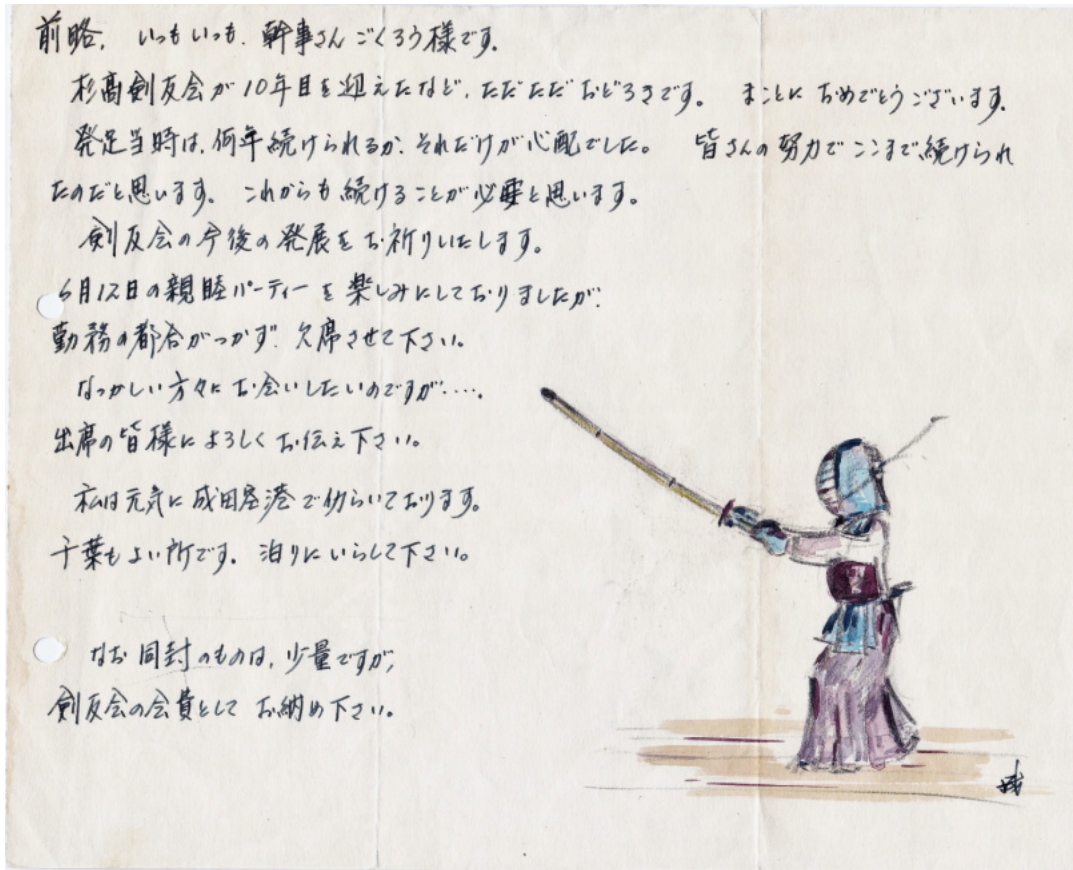 前略、いつもいつも、幹事さんごくろう様です。
杉高剣友会が10年目を迎えたなど、ただただおどろきです。まことにおめでとうございます。
発足当時は、何年続けられるか、それだけが心配でした。皆さんの努力でここまで続けられ
たのだと思います。これからも続けることが必要と思います。
剣友会の今後の発展をお祈りいたします。
6月12日の親睦パーティーを楽しみにしておりましたが、
勤務の都合がつかず、欠席させて下さい。
なつかしい方々にお会いしたいのですが‥‥。
出席の皆様によろしくお伝え下さい。
私は元気に成田空港で仂らいております。
千葉もよい所です。泊りにいらして下さい。
なお同封のものは、少量ですが、
剣友会の会費としてお納め下さい。